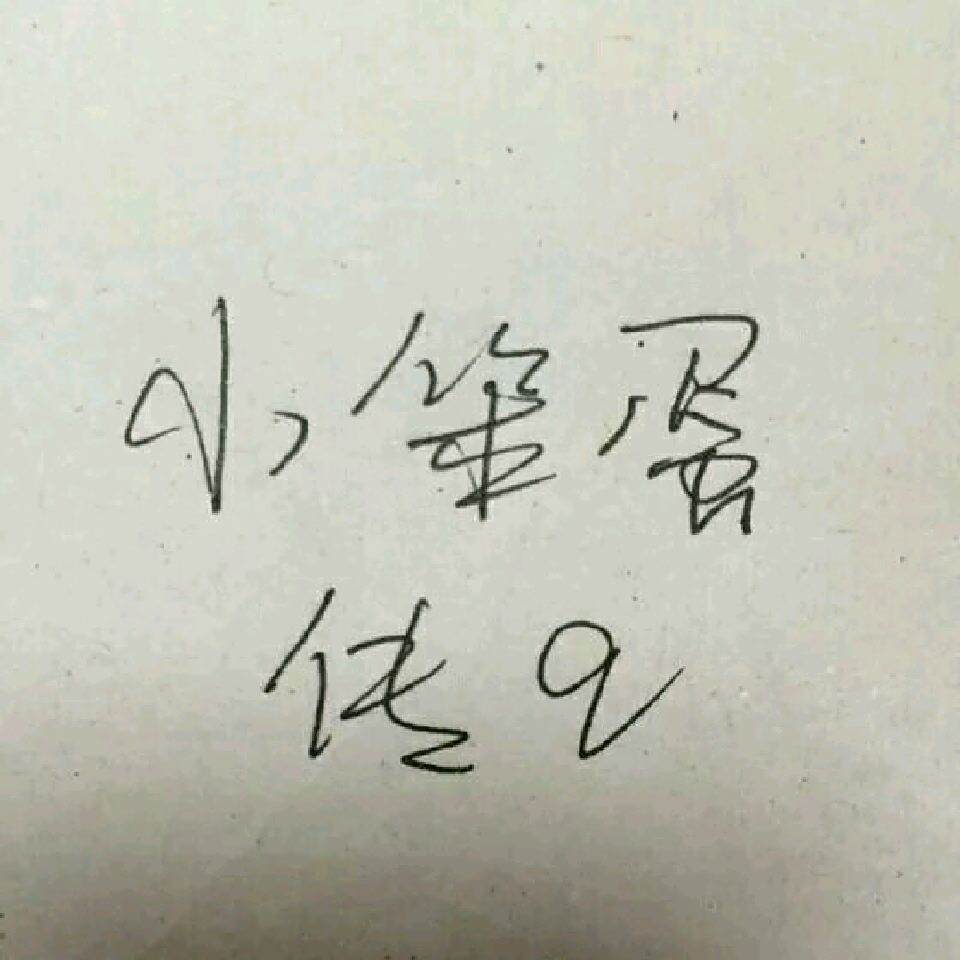 小笨蛋
传q